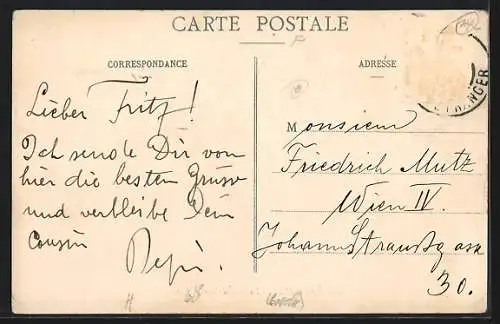 CARTE POSTALE
CORRESPONDANCE
Lieber Fritz!
Ich sende Dir von
hier die besten Grüsse
und verbleibe Dein
Cousin
Pepi.
ADRESSE
ETRANGER
Monsieur
Friedrich Mutz
Wien IV.
Johann Straussgasse
30.